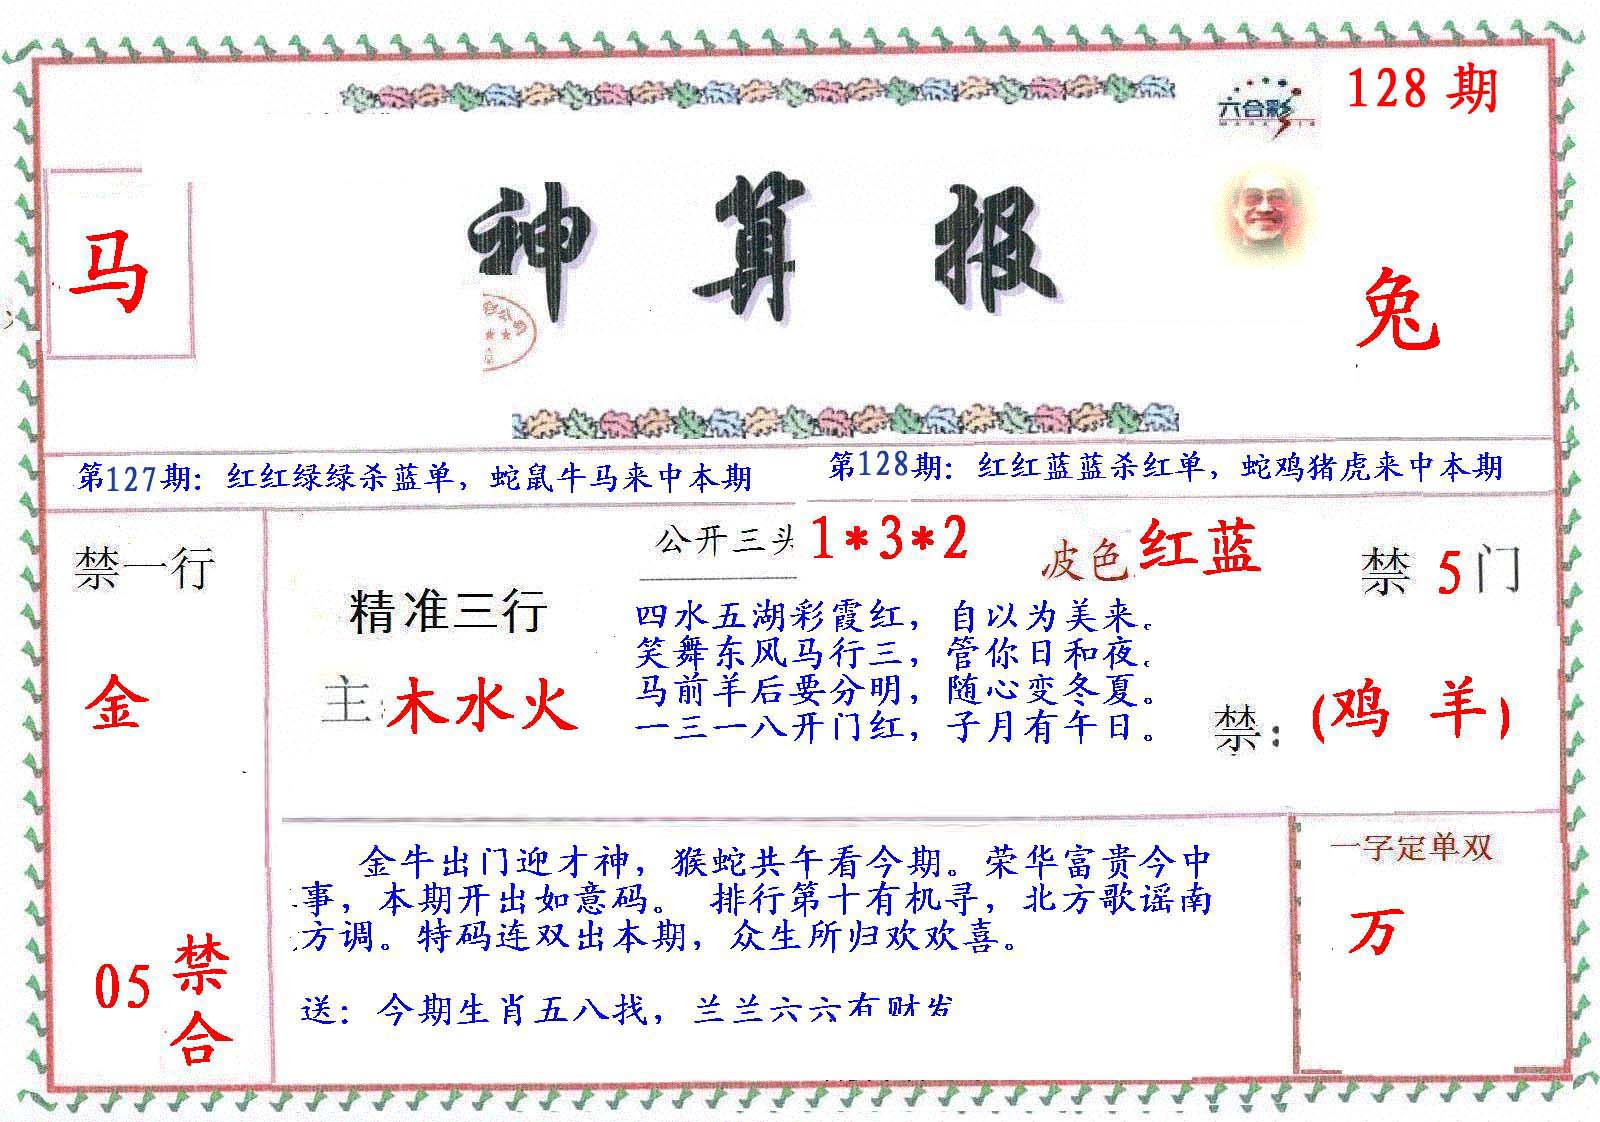 128 期
六合彩
神 算 报
马
兔
第127期：红红绿绿杀蓝单，蛇鼠牛马来中本期
第128期：红红蓝蓝杀红单，蛇鸡猪虎来中本期
禁一行
金
05 禁合
精准三行
主:木水火
公开三头 1*3*2
波色 红蓝
禁 5 门
四水五湖彩霞红，自以为美来。
笑舞东风马行三，管你日和夜。
马前羊后要分明，随心变冬夏。
一三一八开门红，子月有午日。
禁：(鸡 羊)
金牛出门迎才神，猴蛇共午看今期。荣华富贵今中
事，本期开出如意码。 排行第十有机寻，北方歌谣南
方调。特码连双出本期，众生所归欢欢喜。
送：今期生肖五八找，兰兰六六有财发
一字定单双
万